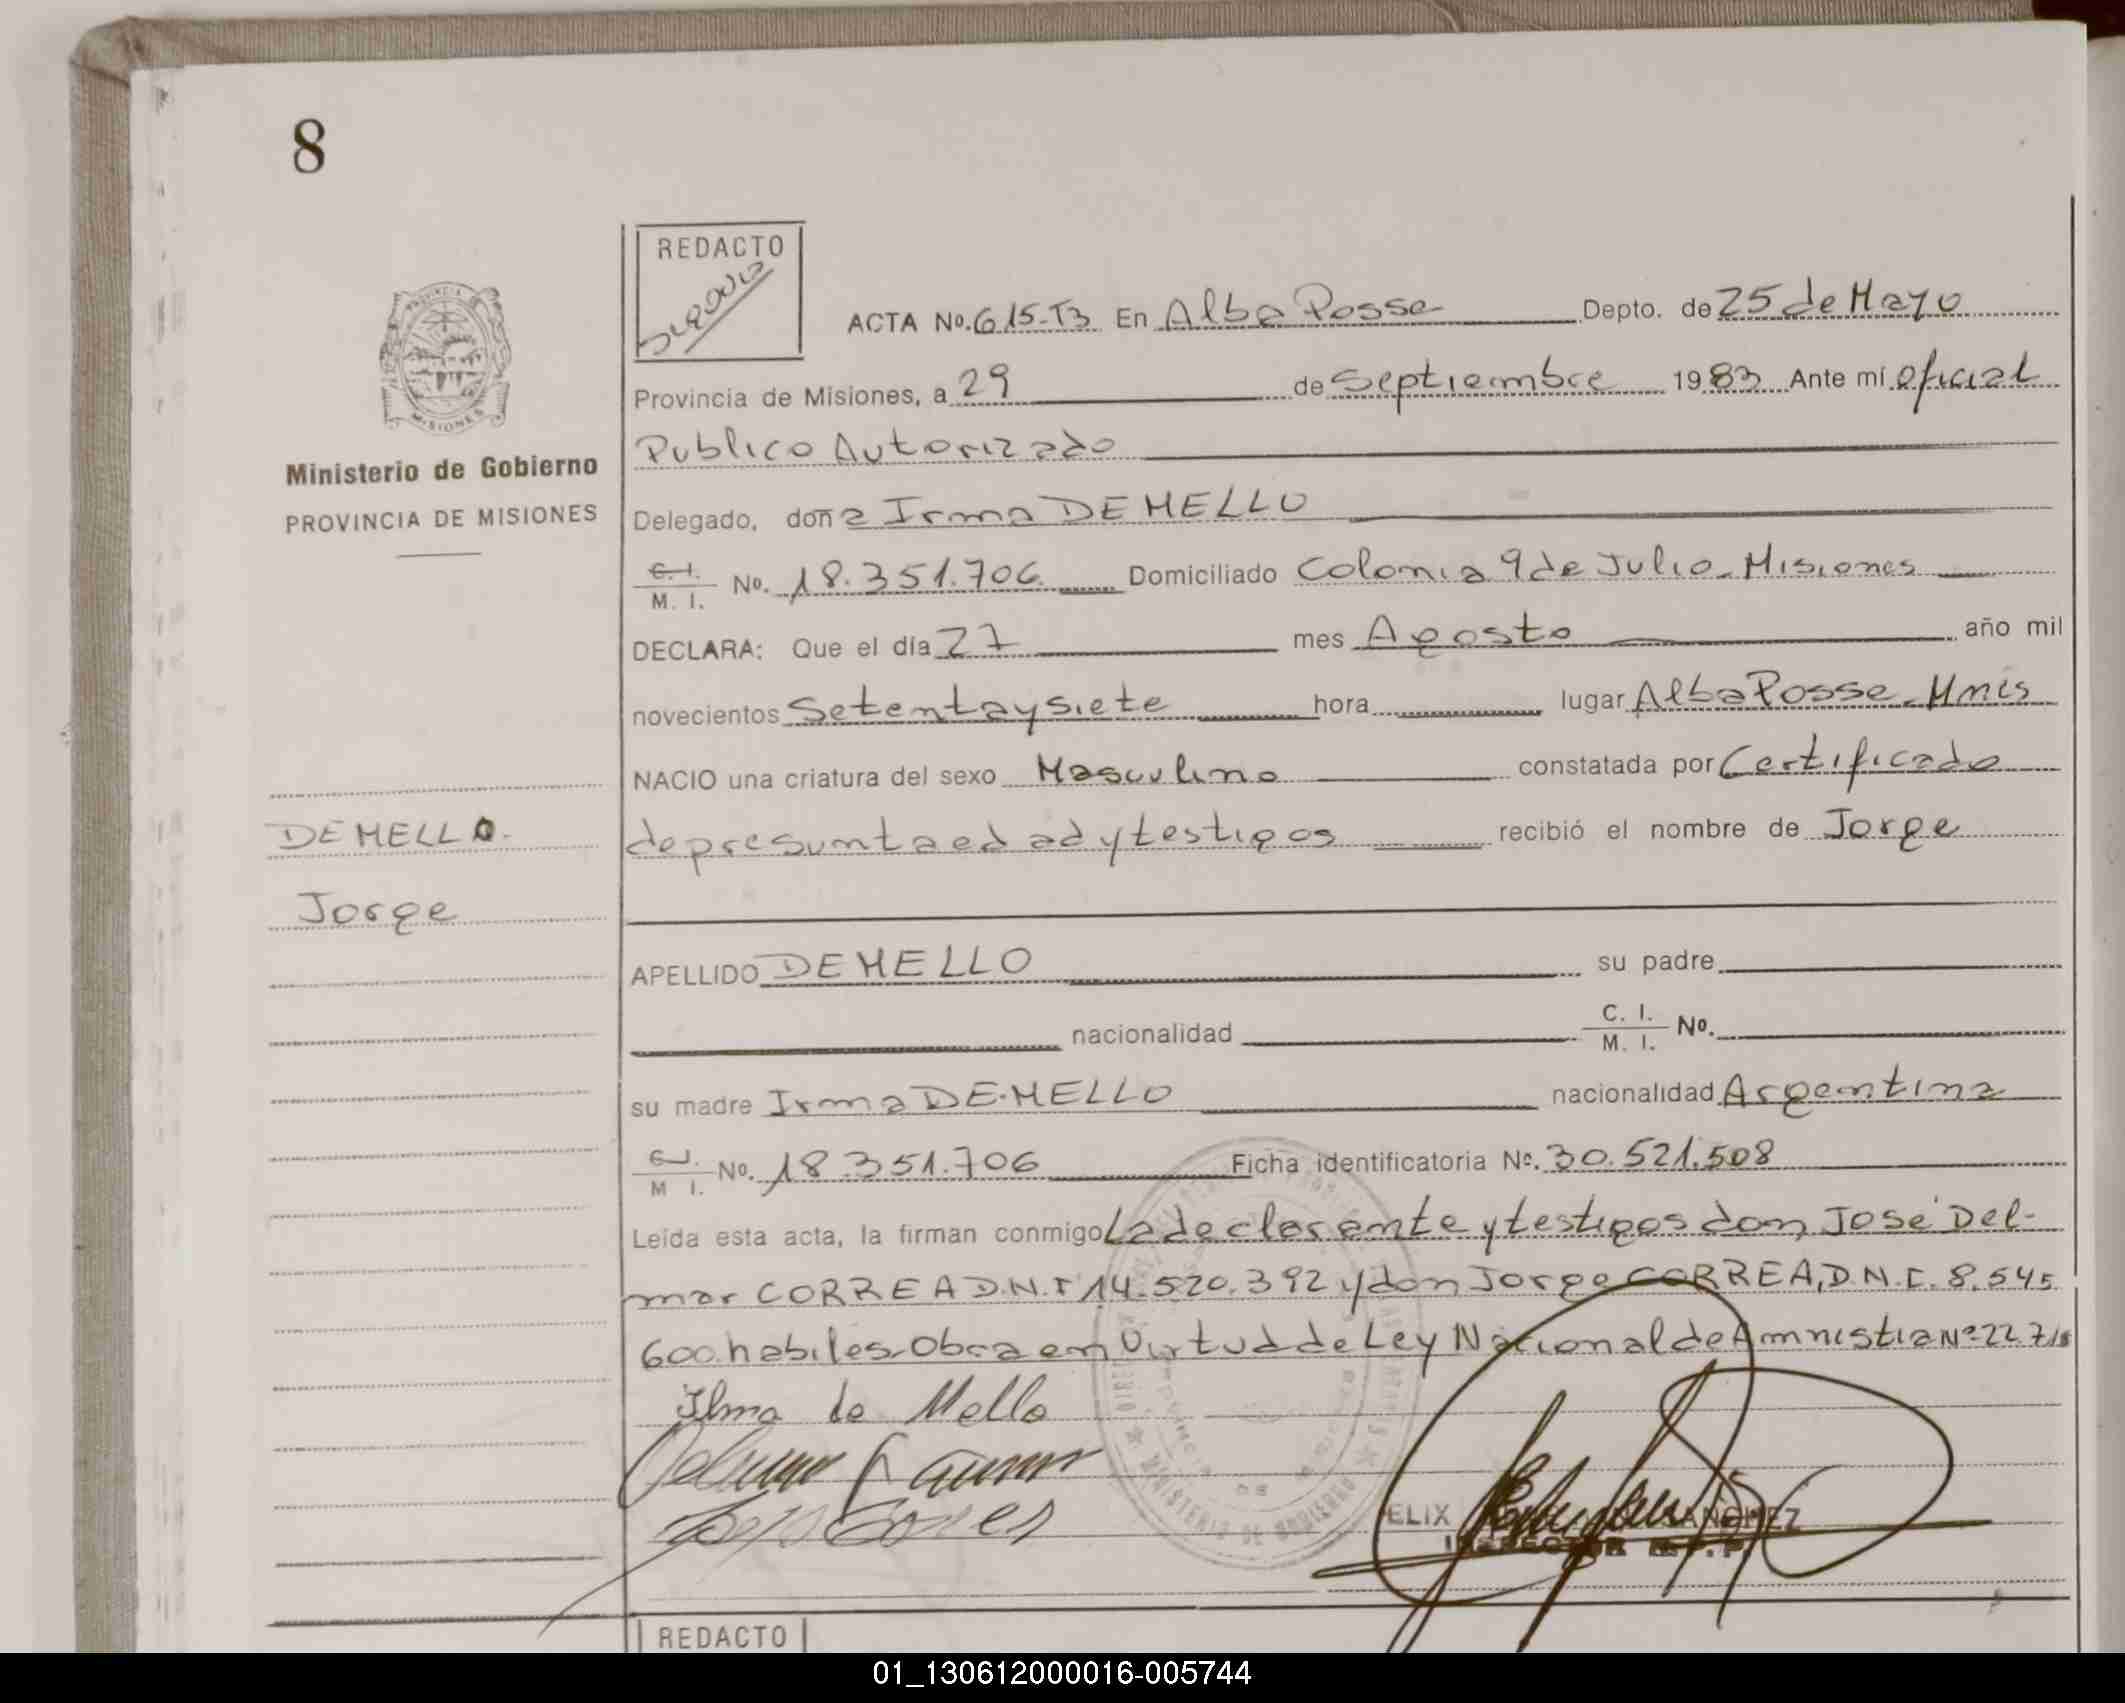 8
REDACTO
ACTA No. 615-T3 En Alba Posse Depto. de 25 de Mayo
Provincia de Misiones, a 29 de Septiembre 1983 Ante mí oficial
Publico Autorizado
Ministerio de Gobierno
PROVINCIA DE MISIONES
Delegado, doña Irma DEMELLO
C. I. M. I. No. 18.351.706 Domiciliado Colonia 9 de Julio-Misiones
DECLARA: Que el día 27 mes Agosto año mil
novecientos Setenta y siete hora lugar Alba Posse-Mnes
NACIO una criatura del sexo Masculino constatada por Certificado
DEMELLO.
de presunta edad y testigos recibió el nombre de Jorge
Jorge
APELLIDO DEMELLO su padre
nacionalidad C. I. M. I. No.
su madre Irma DE.MELLO nacionalidad Argentina
C. I. M I. No. 18.351.706 Ficha identificatoria No. 30.521.508
Leída esta acta, la firman conmigo La declarante y testigos don, José Del-
mar CORREA D.N.I 14.520.392 y don Jorge CORREA, D.N.I. 8.545
600 habiles-Obra en Virtud de Ley Nacional de Amnistia Nº 22.718
Ilma de Mello
ELIX SANCHEZ
INSPECTOR R.P.P.
MINISTERIO DE GOBIERNO
REDACTO
01_130612000016-005744